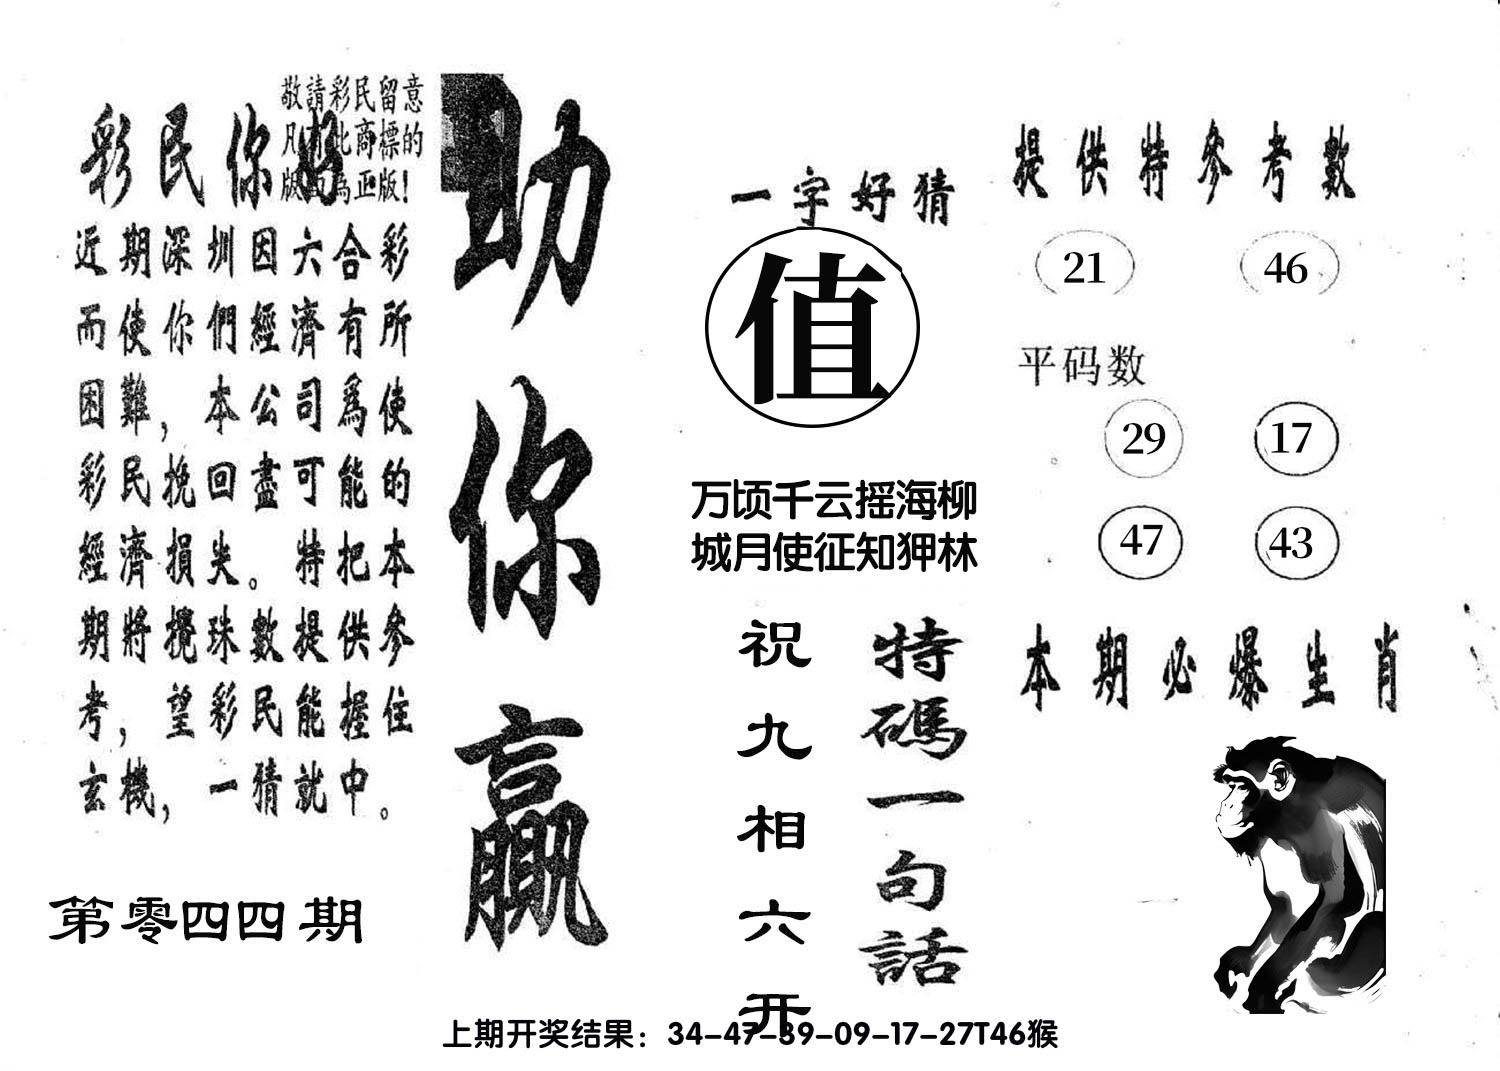 敬請彩民留意
凡有此商標的
版面為正版!
彩民你好
近期深圳因六合彩
而使你們經濟有所
困難，本公司爲使
彩民挽回盡可能的
經濟損失。特把本
期將攪珠數提供參
考，望彩民能握住
玄機，一猜就中。
第零四四期
助你贏
一字好猜
值
万顷千云摇海柳
城月使征知狎林
特碼一句話
祝九相六开
提供特參考數
21 46
平码数
29 17
47 43
本期必爆生肖
上期开奖结果：34-47-39-09-17-27T46猴